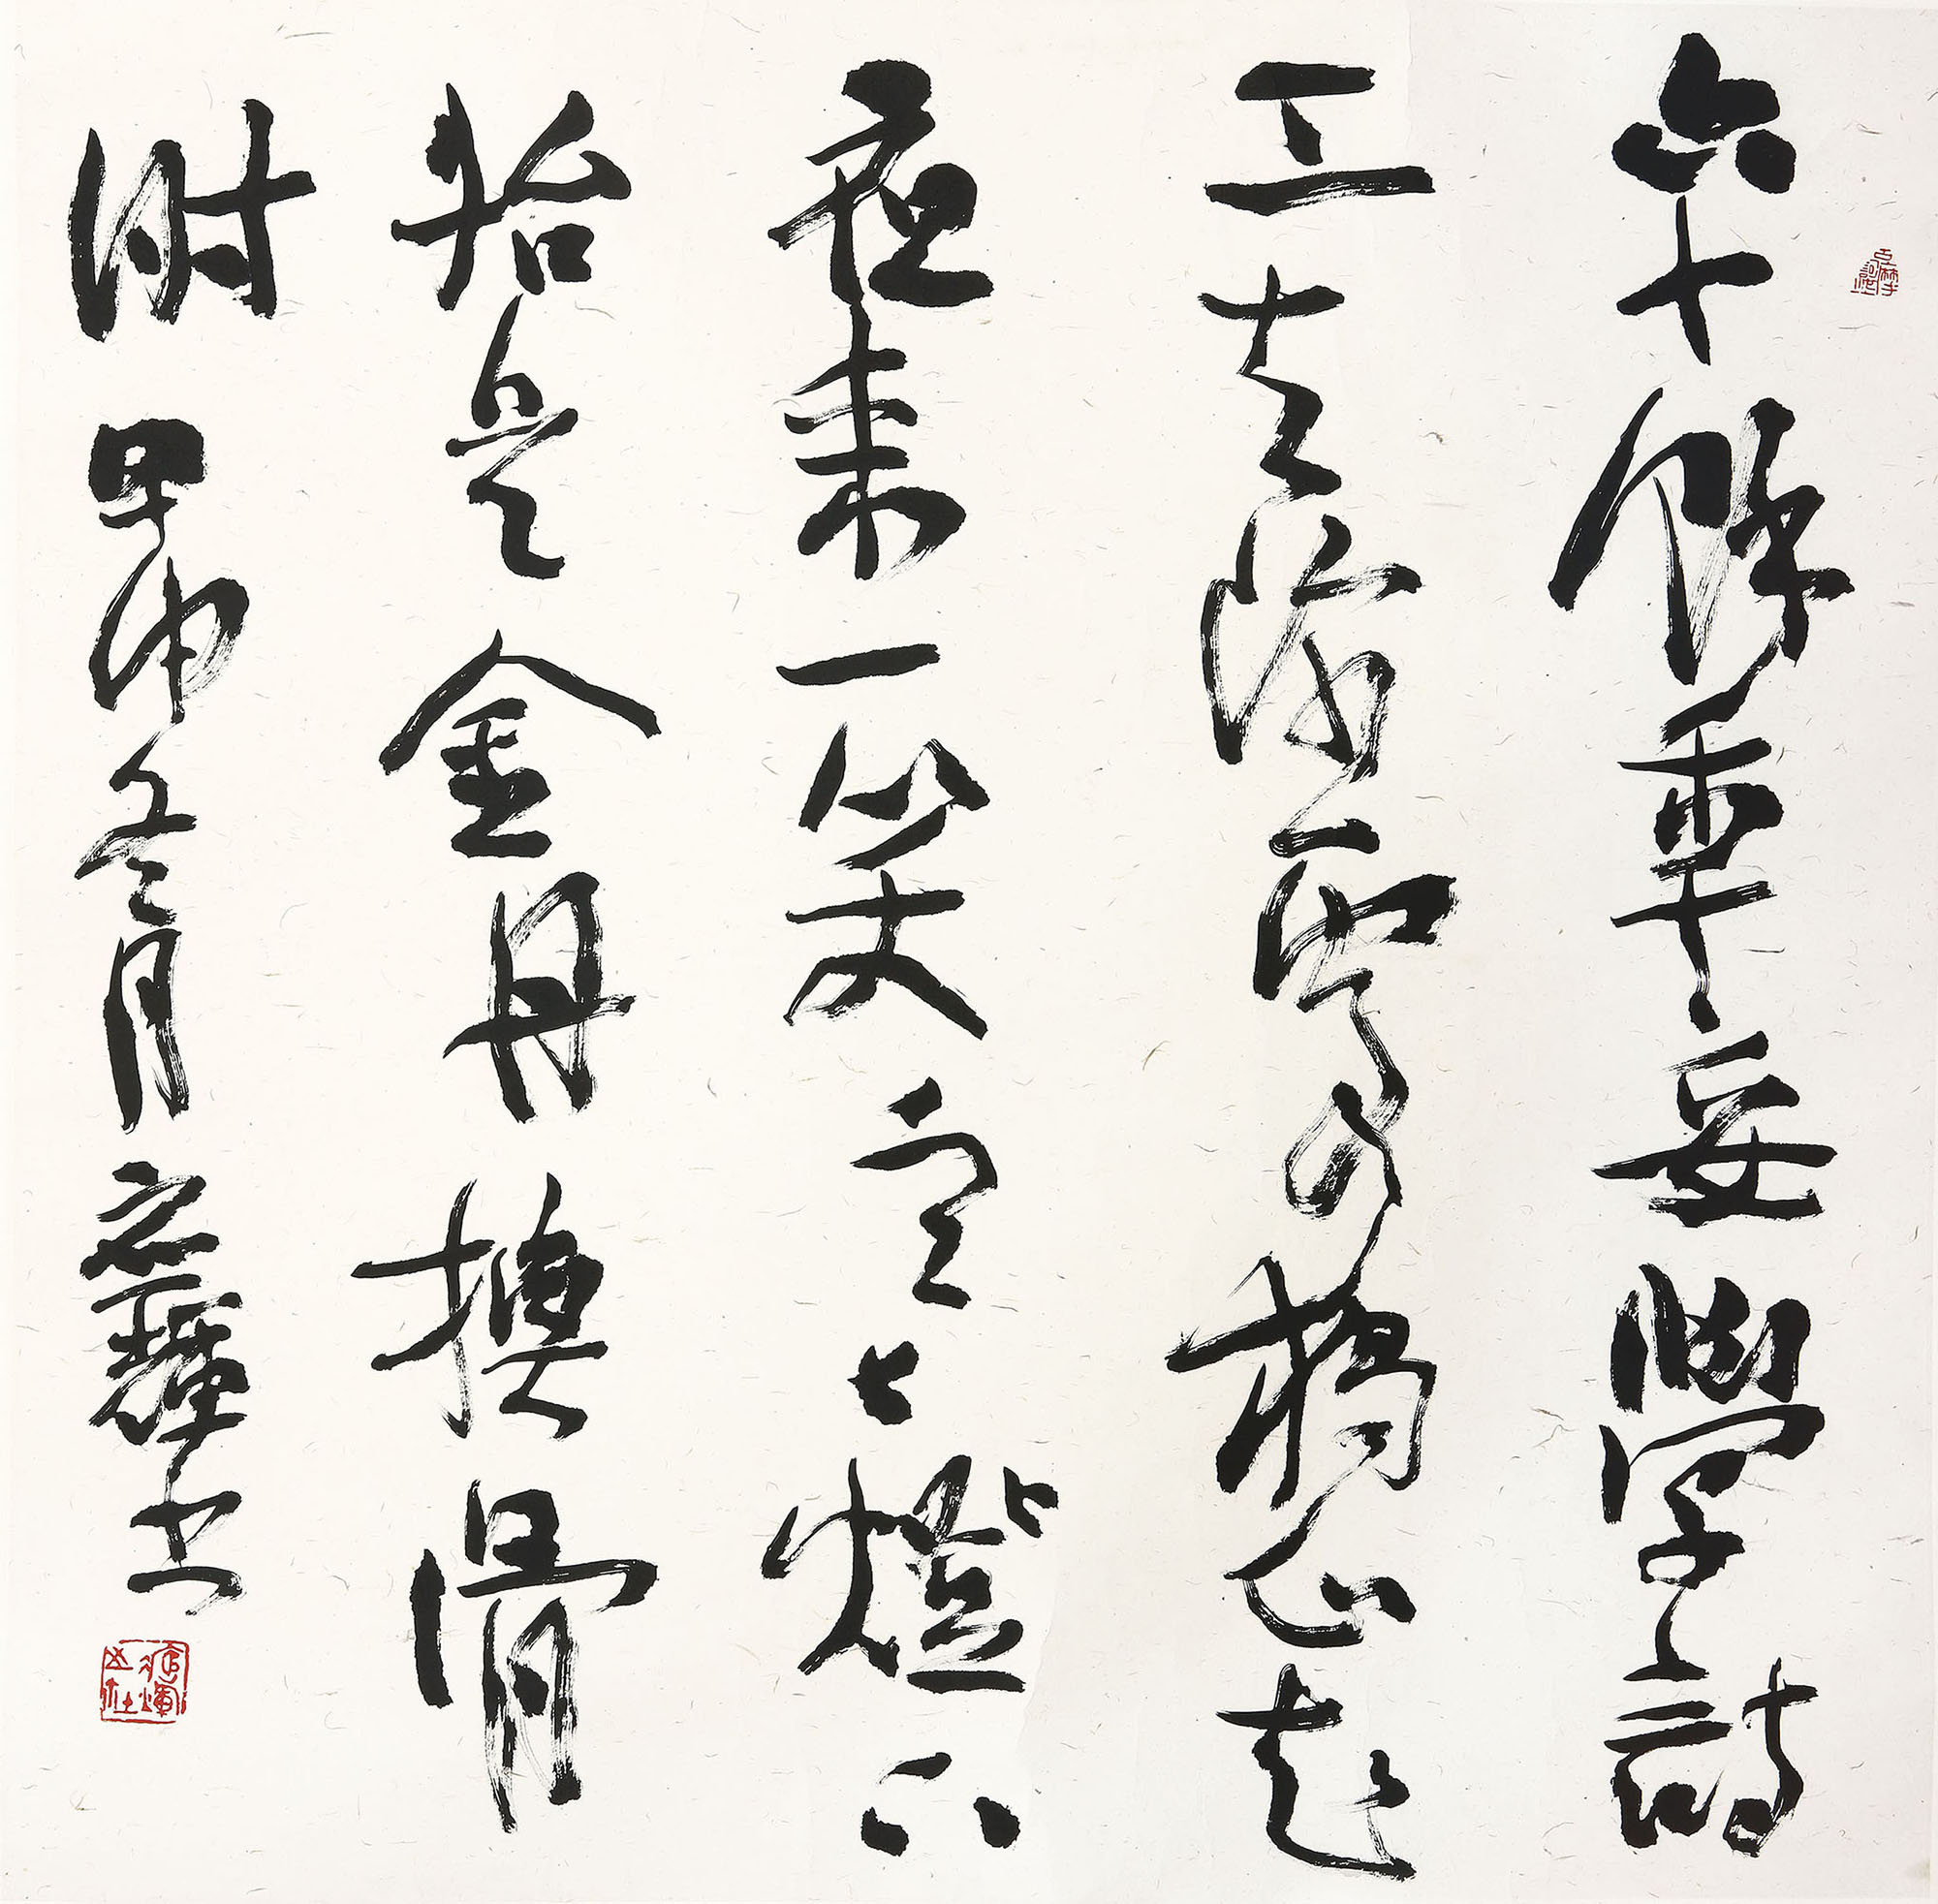 六十餘年妄學詩
工夫深處獨心知
夜來一笑寒燈下
始是金丹換骨
時 甲申冬月